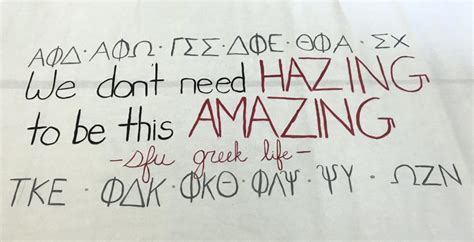 ΑΦΔ · ΑΦΩ · ΓΣΣ · ΔΦΕ · ΘΦΑ · ΣΧ
We don't need HAZING
to be this AMAZING
- sfu greek life -
ΤΚΕ · ΦΔΚ · ΦΚΘ · ΦΛΨ · ΨΥ · ΩΖΝ